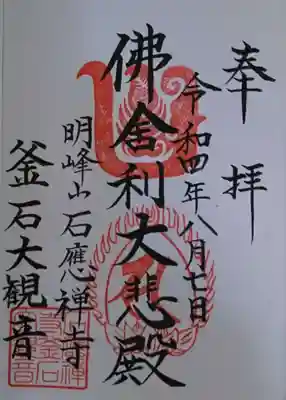 奉拝
令和四年八月七日
佛舍利大悲殿
明峰山石應禅寺
釜石大観音